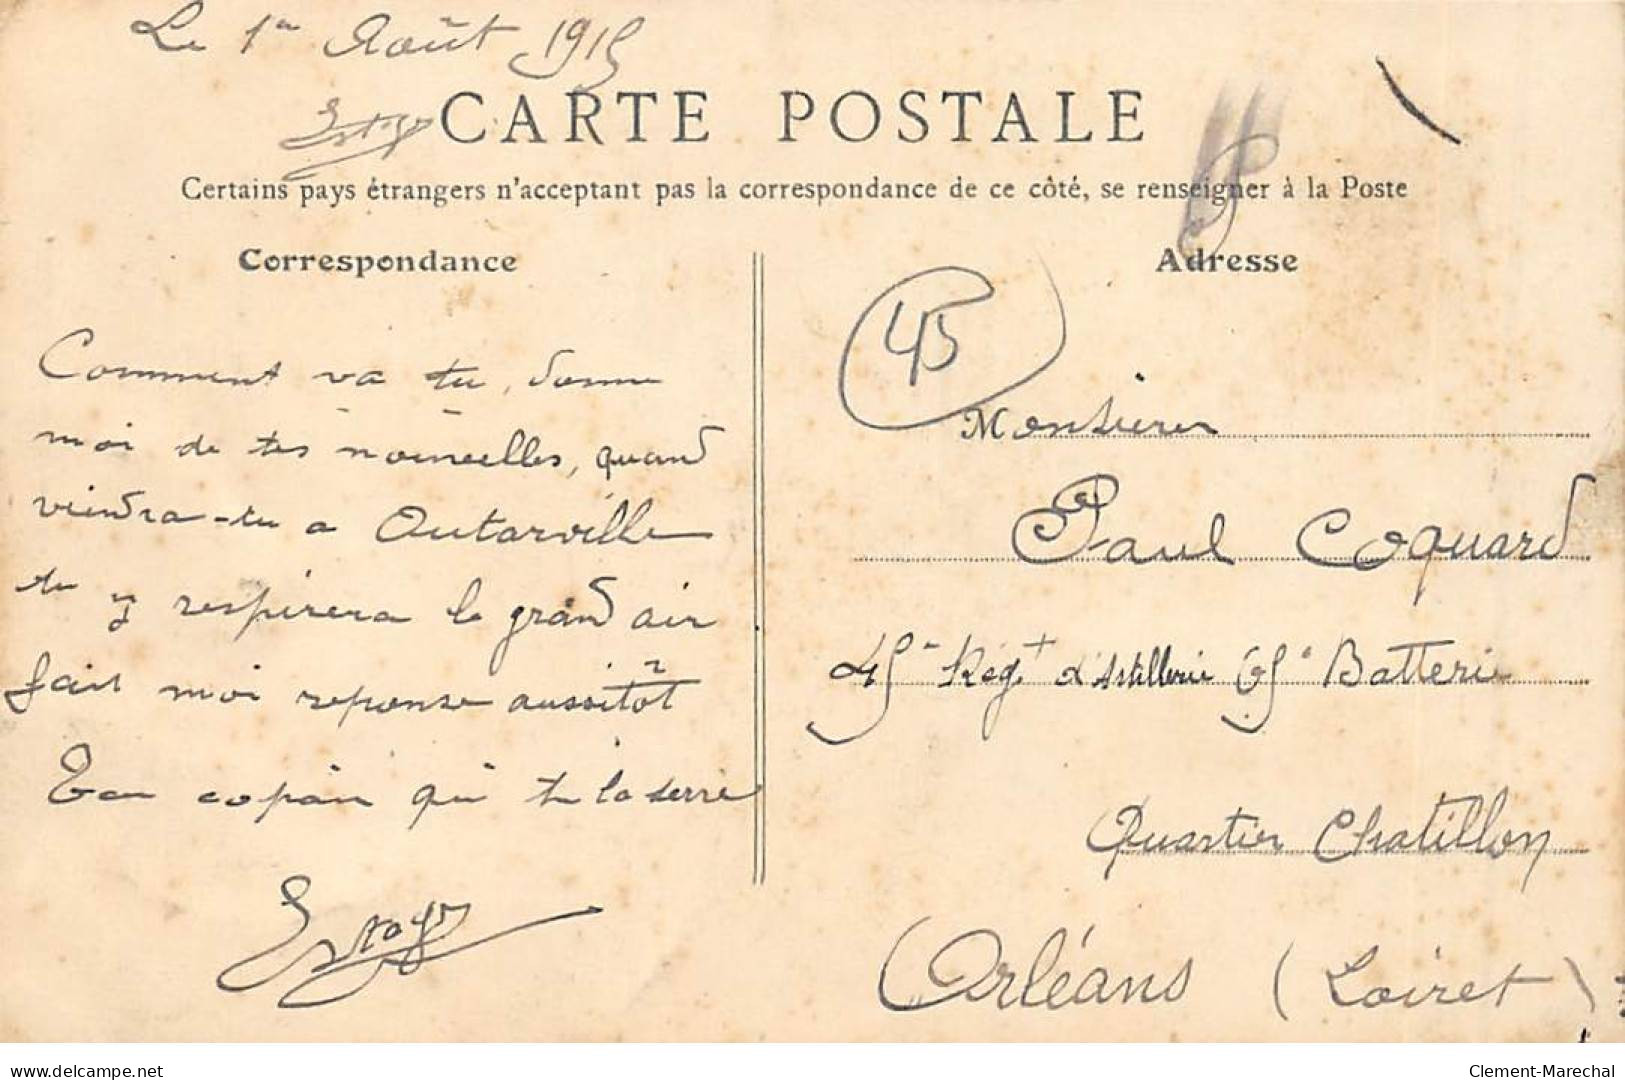 Le 1er Août 1915
CARTE POSTALE
Certains pays étrangers n'acceptant pas la correspondance de ce côté, se renseigner à la Poste
Correspondance
Adresse
Comment va tu, donne
moi de tes nouvelles, quand
viendra-tu a Outarville
tu y respirera le grand air
fait moi reponse aussitôt
Ton copain qui te la serre
45
Monsieur
Paul Coquard
45e Régt d'Artillerie 65e Batterie
Quartier Chatillon
Orléans (Loiret)
delcampe.net
Clement-Marechal